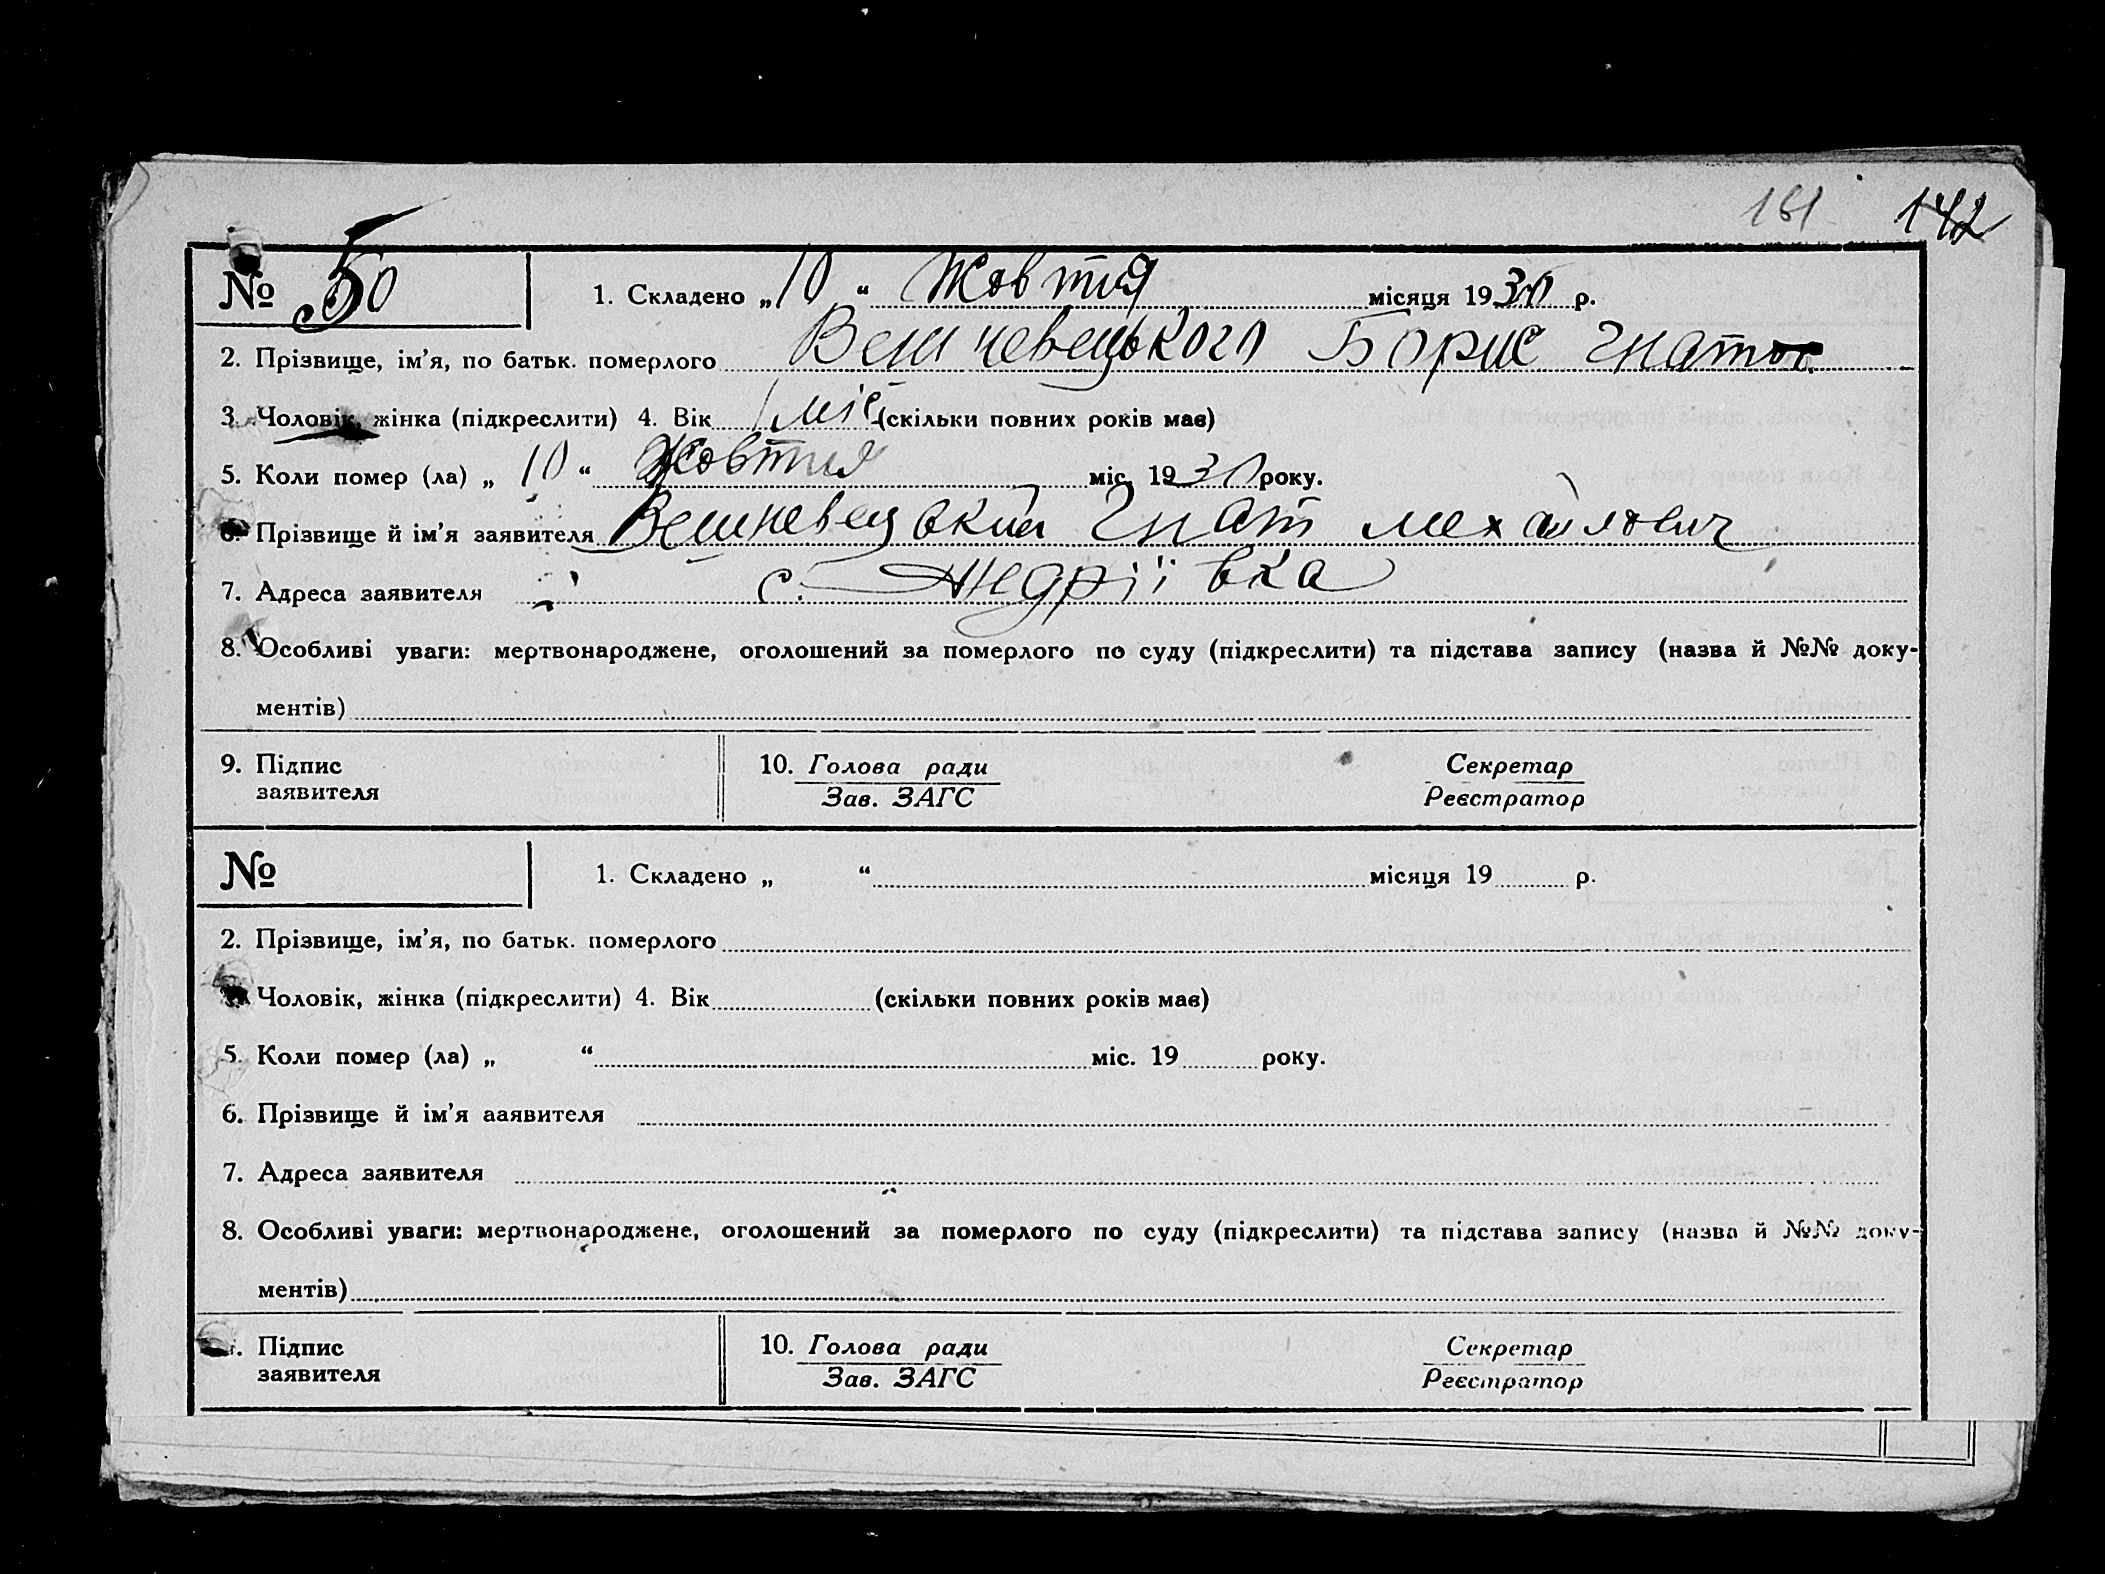 161 142
№ 50 1. Складено „10“ Жовтня місяця 1930 р.
2. Прізвище, ім’я, по батьк. померлого Вешневецького Борис Гнатов.
3. Чоловік, жінка (підкреслити) 4. Вік 1 міс (скільки повних років має)
5. Коли помер (ла) „10“ Жовтня міс. 1930 року.
6. Прізвище й ім’я заявителя Вешневецький Гнат Мехайлович
7. Адреса заявителя с. Андріївка
8. Особливі уваги: мертвонароджене, оголошений за померлого по суду (підкреслити) та підстава запису (назва й №№ доку-
ментів)
9. Підпис заявителя 10. Голова ради Секретар
Зав. ЗАГС Реєстратор
№ 1. Складено „ “ місяця 19 р.
2. Прізвище, ім’я, по батьк. померлого
Чоловік, жінка (підкреслити) 4. Вік (скільки повних років має)
5. Коли помер (ла) „ “ міс. 19 року.
6. Прізвище й ім’я ааявителя
7. Адреса заявителя
8. Особливі уваги: мертвонароджене, оголошений за померлого по суду (підкреслити) та підстава запису (назва й №№ доку-
ментів)
Підпис заявителя 10. Голова ради Секретар
Зав. ЗАГС Реєстратор